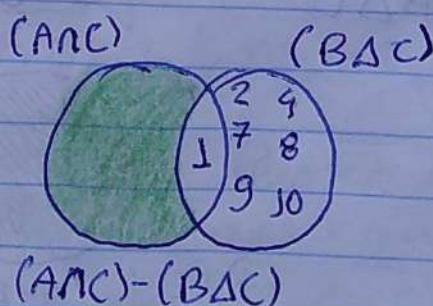 (A∩C) (BΔC)
2 4
7
1 8
9 10
(A∩C)-(BΔC)